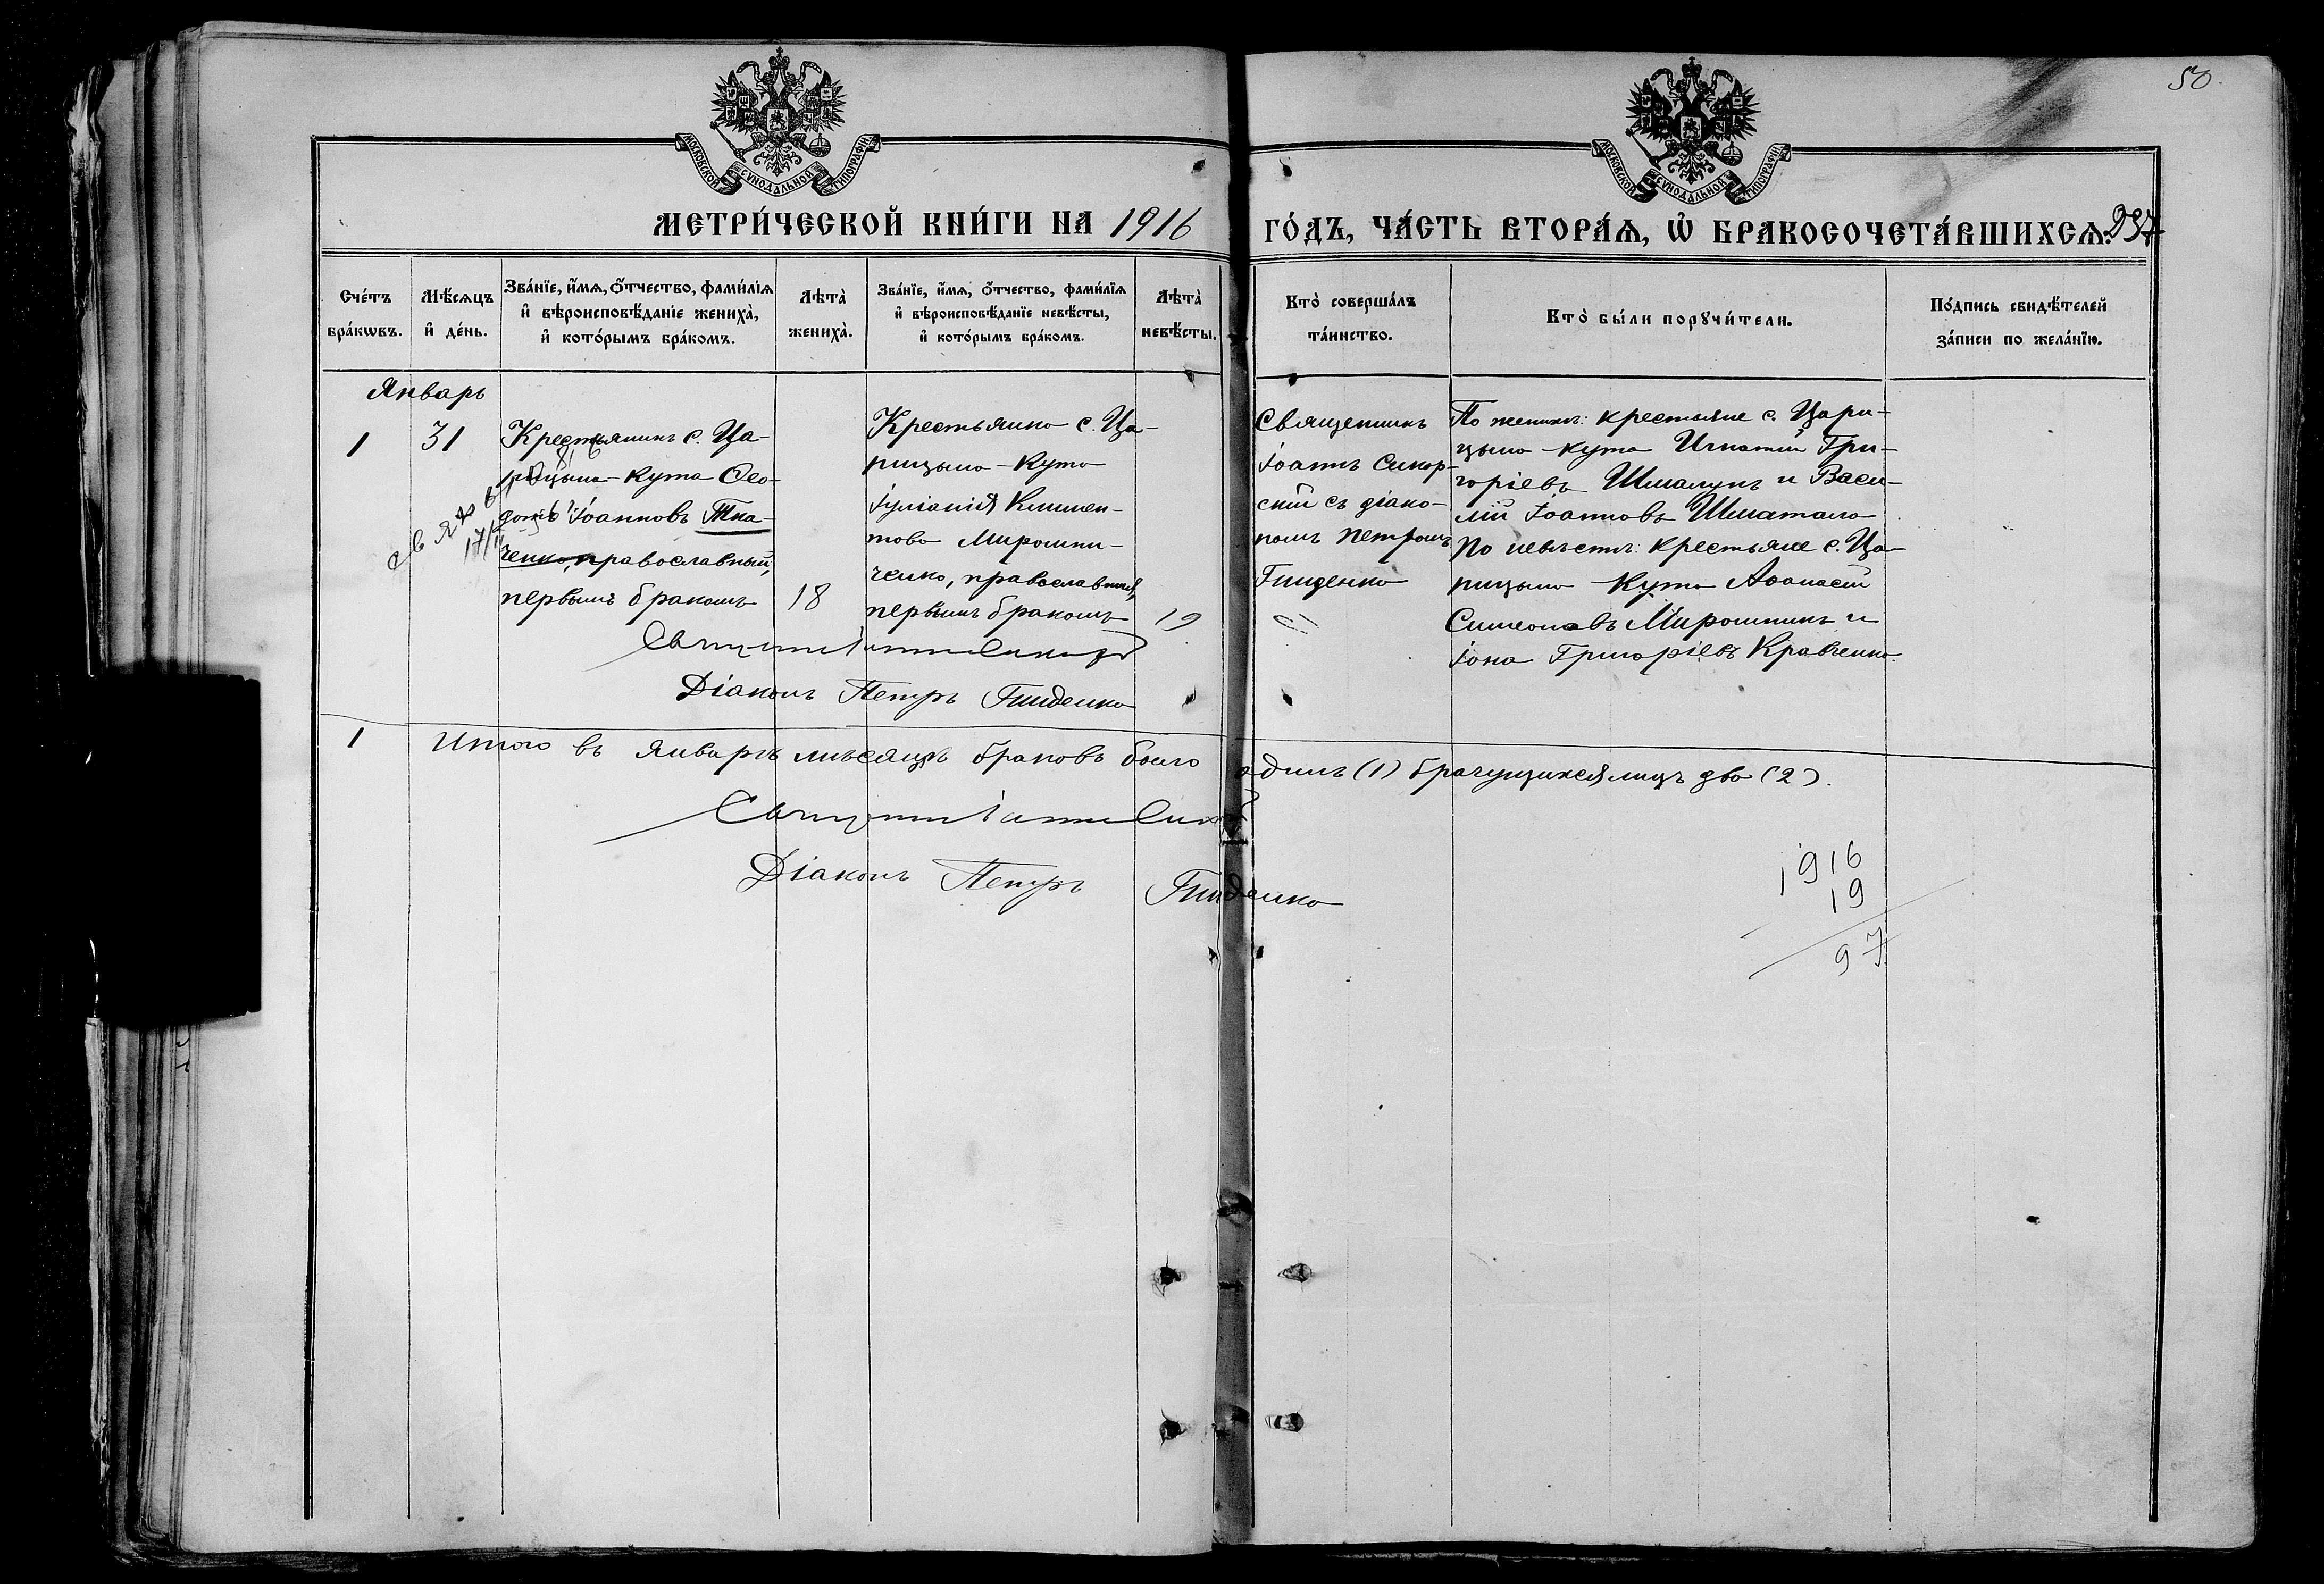 50.
МОСКОВСКОЙ СѴНОДАЛЬНОЙ ТИПОГРАФІИ.
МОСКОВСКОЙ СѴНОДАЛЬНОЙ ТИПОГРАФІИ.
МЕТРИ́ЧЕСКОЙ КНИ́ГИ НА 1916 ГО́ДЪ, ЧА́СТЬ ВТОРА́Ѧ, Ѡ҆ БРАКОСОЧЕТА́ВШИХСѦ. 237
Сче́тъ
бра́кѡвъ.
Мѣ́сѧцъ
и҆ де́нь.
Зва́нїе, и҆́мѧ, ѻ҆́тчество, фами́лїѧ
и҆ вѣроисповѣ́данїе женихà,
и҆ кото́рымъ бра́комъ.
Лѣтà
женихà.
Зва́нїе, и҆́мѧ, ѻ҆́тчество, фами́лїѧ
и҆ вѣроисповѣ́данїе невѣ́сты,
и҆ кото́рымъ бра́комъ.
Лѣтà
невѣ́сты.
Кто̀ соверша́лъ
та́инство.
Кто̀ бы́ли порꙋчи́тели.
По́дпись свидѣ́телей
за́писи по жела́нїю.
Январь
1
31
Крестьянинъ с. Ца-
рицына-Кута Ѳео-
дотъ Іоанновъ Тка-
ченко, православный,
первымъ бракомъ
18
Крестьянка с. Ца-
рицына-Кута
Іуліанія Климен-
това Мирошни-
ченко, православная,
первымъ бракомъ
19
Священникъ
Іоаннъ Сикор-
скій съ діако-
номъ Петромъ
Гниденко
По женихѣ: крестьяне с. Цари-
цына-Кута Игнатій Гри-
горіевъ Шмалунъ и Васи-
лій Іоанновъ Шматало
По невѣстѣ: крестьяне с. Ца-
рицына Кута Аѳанасій
Симеоновъ Мирошникъ и
Іона Григоріевъ Кравченко.
Священникъ Іоаннъ Сикорскій
Діаконъ Петръ Гниденко
1 Итого въ Январѣ мѣсяцѣ браковъ было одинъ (1) брачущихся лицъ два (2).
Священникъ Іоаннъ Сикорскій
Діаконъ Петръ Гниденко
1916
19
97